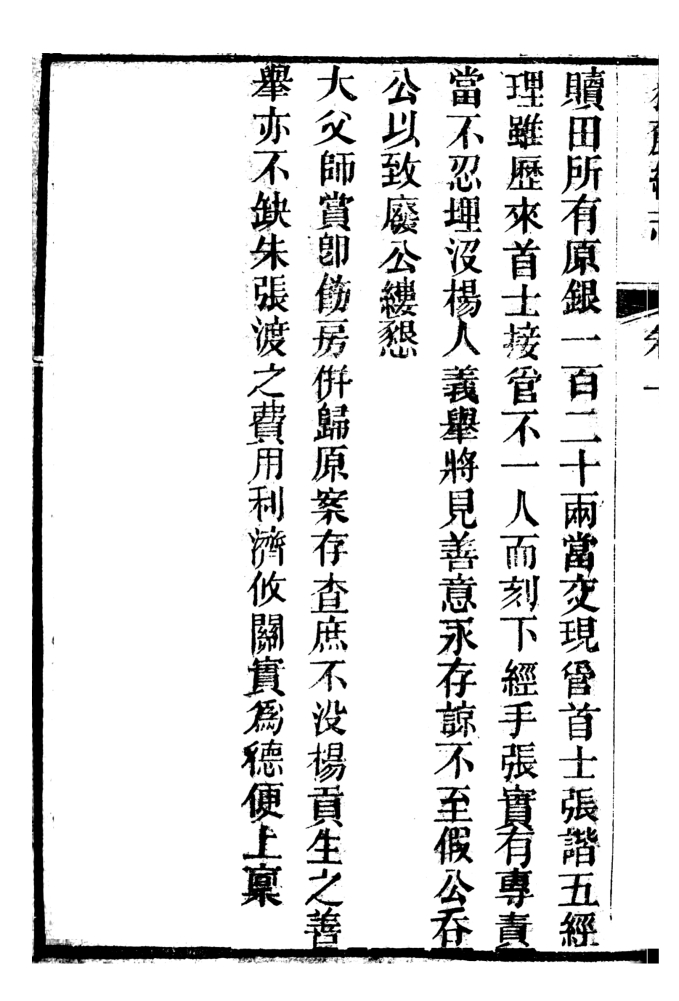 贖田所有原銀一百二十兩當交現管首士張諧五經
理雖歷來首士接管不一人而刻下經手張實有專責
當不忍埋沒楊人義舉將見善意永存諒不至假公吞
公以致廢公縷懇
大父師賞卽飭房併歸原案存查庶不没楊貢生之善
舉亦不缺朱張渡之費用利濟攸關實爲德便上稟